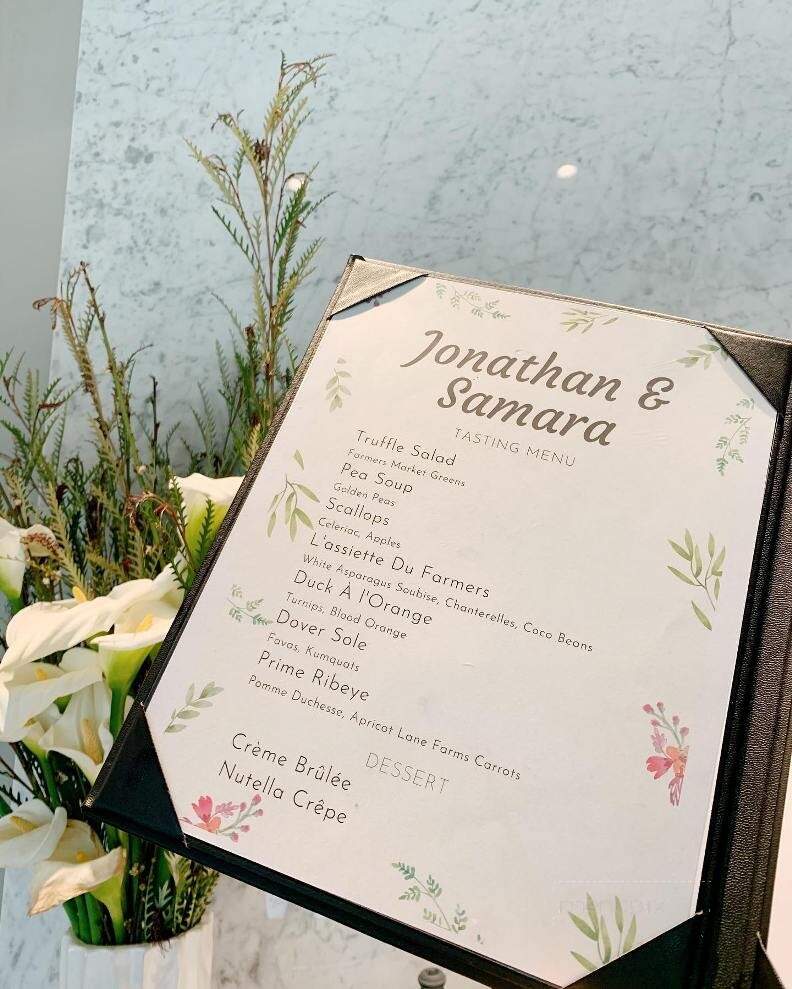 Jonathan &
Samara
TASTING MENU
Truffle Salad
Farmers Market Greens
Pea Soup
Golden Peas
Scallops
Celeriac, Apples
L'assiette Du Farmers
White Asparagus Soubise, Chanterelles, Coco Beans
Duck À l'Orange
Turnips, Blood Orange
Dover Sole
Favas, Kumquats
Prime Ribeye
Pomme Duchesse, Apricot Lane Farms Carrots
DESSERT
Crème Brûlée
Nutella Crêpe